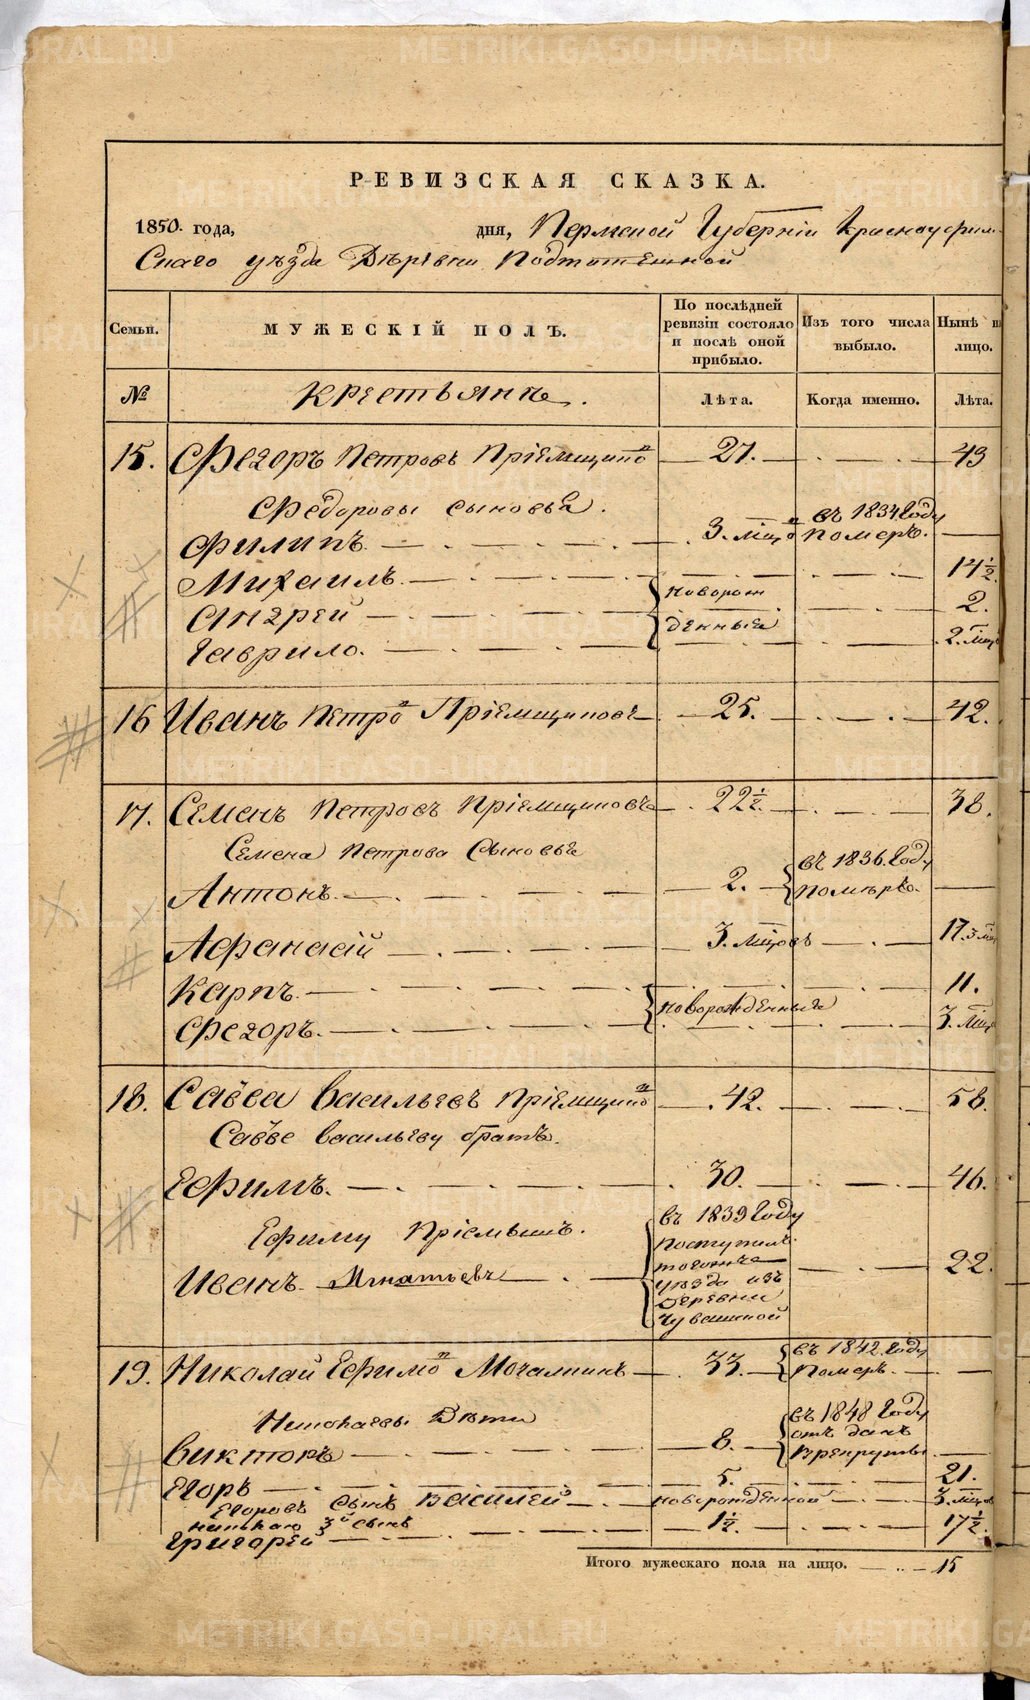 РЕВИЗСКАЯ СКАЗКА.
1850. года, дня, Пермской Губерніи Красноуфим-
Скаго уѣзда Дѣревни
Семьи. МУЖЕСКІЙ ПОЛЪ. По послѣдней ревизіи состояло и послѣ оной прибыло. Изъ того числа выбыло. Нынѣ на лицо.
№ Крестьянѣ. Лѣта. Когда именно. Лѣта.
15. Фе2оръ Петровъ Пріемщико 27. 43
Федоровы сыновья.
Филипъ 3. мцо въ 1834 Году померъ.
Михаилъ. 14½
Ан2рей новорож 2.
Гаврило. денныя 2. мцо
16 Иванъ Петро Пріемщиковъ 25. 42.
17. Семенъ Петровъ Пріемщиковъ 22½ 38.
Семена Петрова Сыновья
Антонъ. 2. въ 1836. Году помѣръ.
Афанасій 3. мцовъ 17. 3 мц
Карпъ. 11.
Фе2оръ. новорожденныя 3. мц
18. Савва Васильевъ Пріемщико 42. 58.
Савве Васильеву братъ.
Ефимъ. 30. 46.
Ефиму Пріемышъ.
Иванъ. Игнатьевъ въ 1839 Году поступилъ тогожъ уѣзда изъ деревни Чувашской 22.
19. Николай Ефимо Мочалинъ 33. въ 1842. Году Помѣръ.
Николаевы Дѣти
Викторъ 8. въ 1848 Году отъ данъ Врекруты
Егоръ 5. 21.
Егоровъ Сынъ Василей новорожденной 3. мцо
3й Сынъ
Григорей 1½. 17½.
Итого мужескаго пола на лицо. 15
METRIKI.GASO-URAL.RU